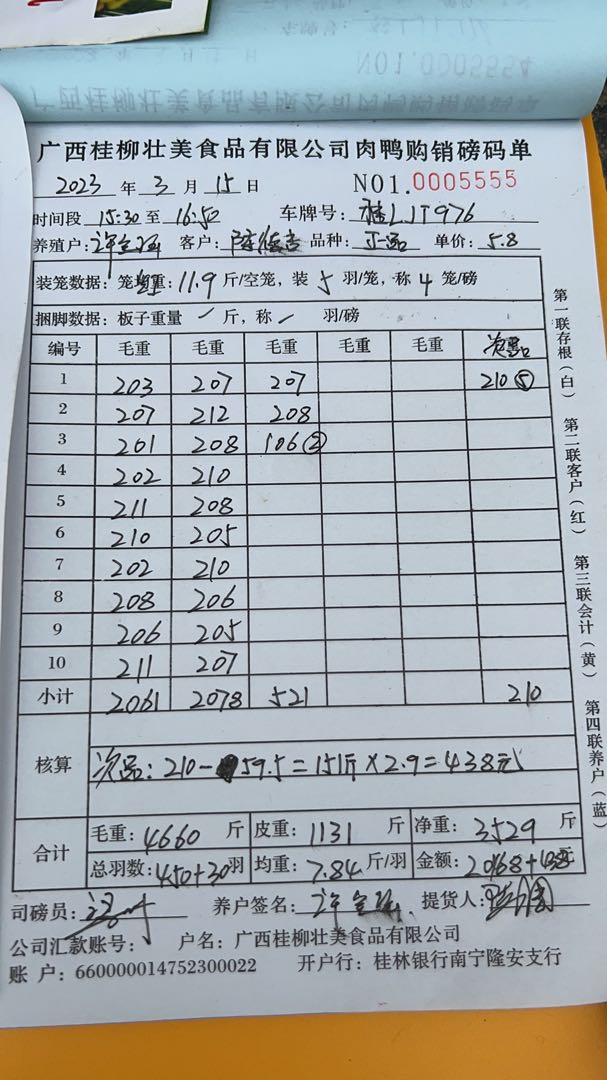 NO1.0005554
广西桂柳壮美食品有限公司肉鸭购销磅码单
广西桂柳壮美食品有限公司肉鸭购销磅码单
2023 年 3 月 15 日 NO1.0005555
时间段 15:30 至 16:50 车牌号: 桂LJT976
养殖户: 客户: 品种: 正品 单价: 5.8
装笼数据: 笼重: 11.9 斤/空笼, 装 5 羽/笼, 称 4 笼/磅
捆脚数据: 板子重量 / 斤, 称 / 羽/磅
编号 毛重 毛重 毛重 毛重 毛重 次品
1 203 207 207 210⑤
2 207 212 208
3 201 208 106②
4 202 210
5 211 208
6 210 205
7 202 210
8 208 206
9 206 205
10 211 207
小计 2061 2078 521 210
核算
次品: 210-59.5=151斤×2.9=438元
合计
毛重: 4660 斤 皮重: 1131 斤 净重: 3529 斤
总羽数: 450+30羽 均重: 7.84 斤/羽 金额:
司磅员: 养户签名: 提货人:
公司汇款账号: 户名: 广西桂柳壮美食品有限公司
账 户: 660000014752300022 开户行: 桂林银行南宁隆安支行
第一联存根(白)
第二联客户(红)
第三联会计(黄)
第四联养户(蓝)